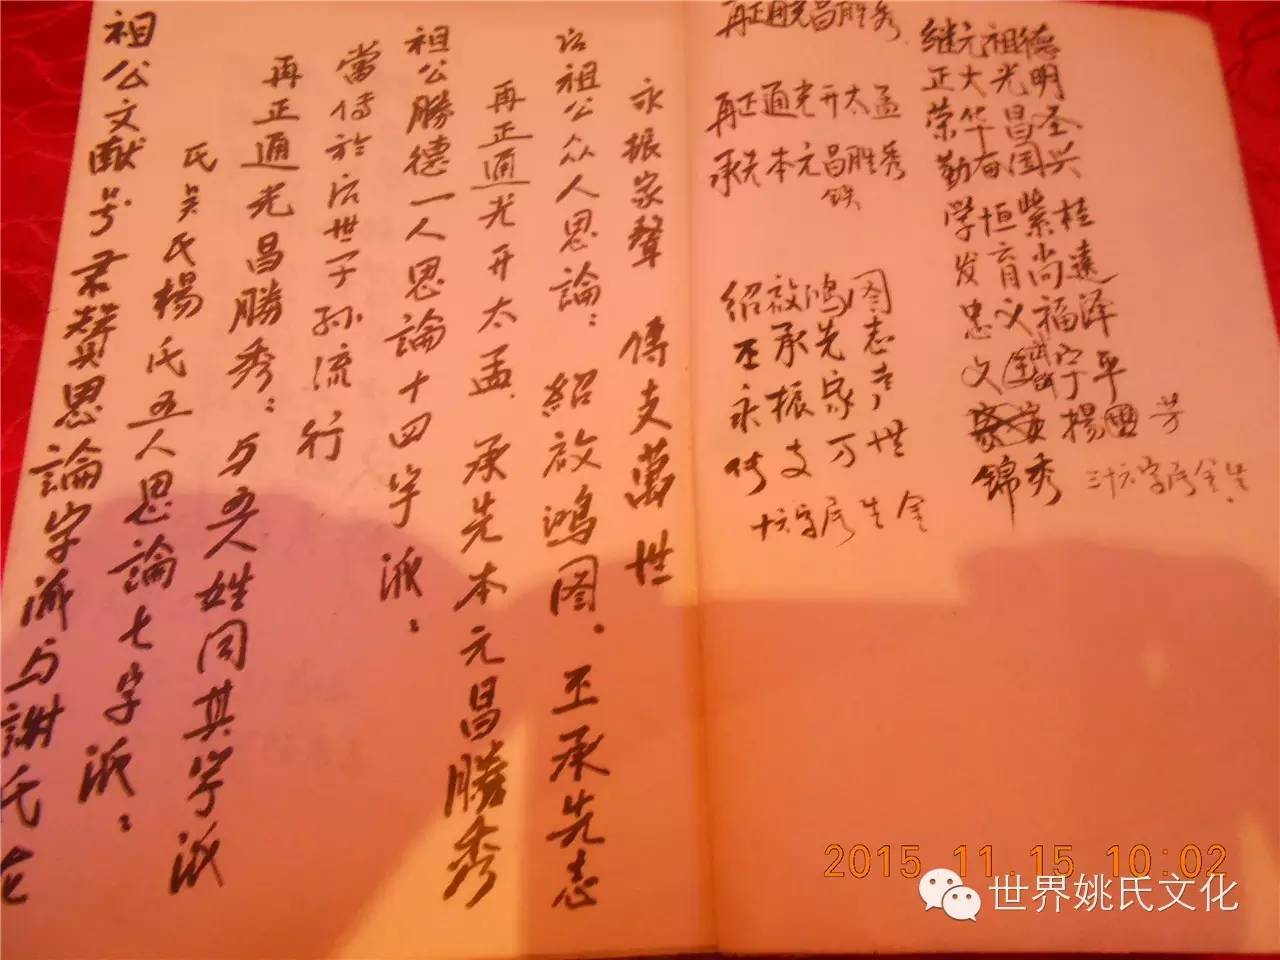 祖公文献号君聲思論字派与謝氏龙
氏吴氏楊氏五人思論七字派：
再正通光昌勝秀：与五人姓同其字派
當传於后世子孙流行
祖公勝德一人思論十四字派：
再正通光开太孟．承先本元昌勝秀
后祖公众人思論：紹啟鴻图．丕承先志
永振家聲 傳支萬世
再正通光昌胜秀
再正通光开太孟
承先本元昌胜秀
绍啟鸿图
丕承先志
永振家声
传支万世
十六字后生全
继元祖德
正大光明
荣华昌圣
勤奋国兴
学恒紫桂
发育尚远
忠义福泽
文 宁平
楊 芳
锦秀 三十六字后全生
2015.11.15 10:02
世界姚氏文化